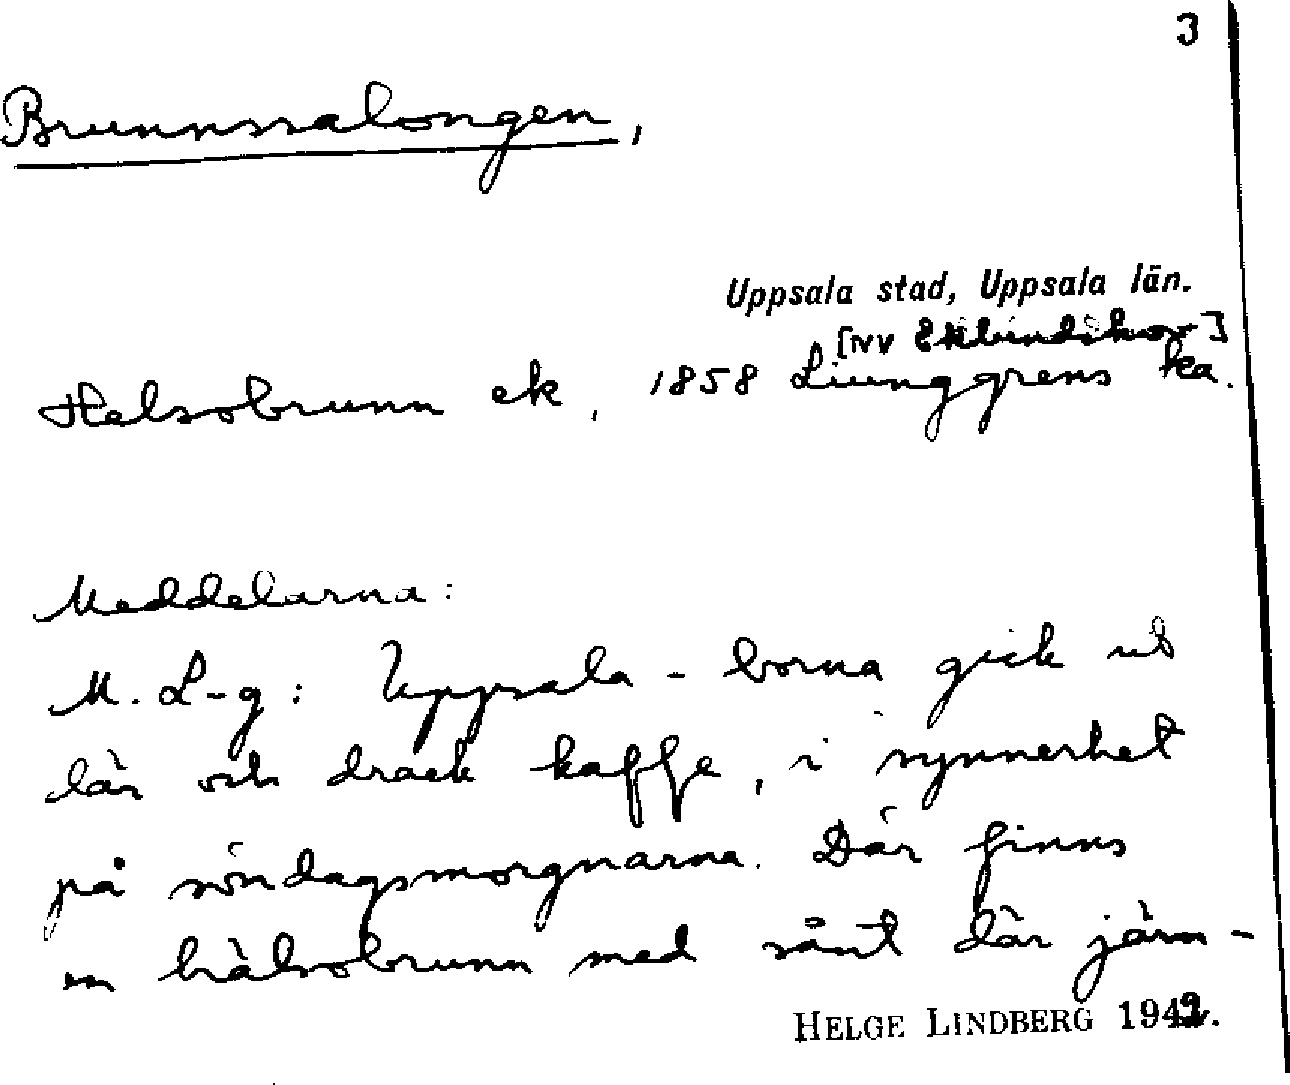 3
Brunnssalongen,
Uppsala stad, Uppsala län.
[NV Eklundshov]
Helsobrunn ek, 1858 Liunggrens ka.
Meddelarna:
M. L-g: Uppsala-borna gick ut
där och drack kaffe, i synnerhet
på söndagsmorgnarna. Där finns
en hälsobrunn med sånt där järn-
HELGE LINDBERG 1942.